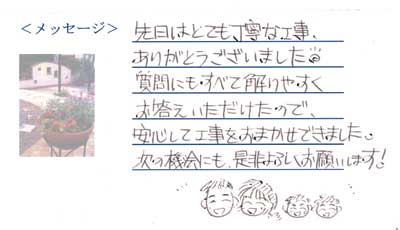 ＜メッセージ＞
先日はとても丁寧な工事、
ありがとうございました
質問にもすべて解りやすく
お答えいただけたので、
安心して工事をおまかせできました。
次の機会にも、是非よろしくお願いします!